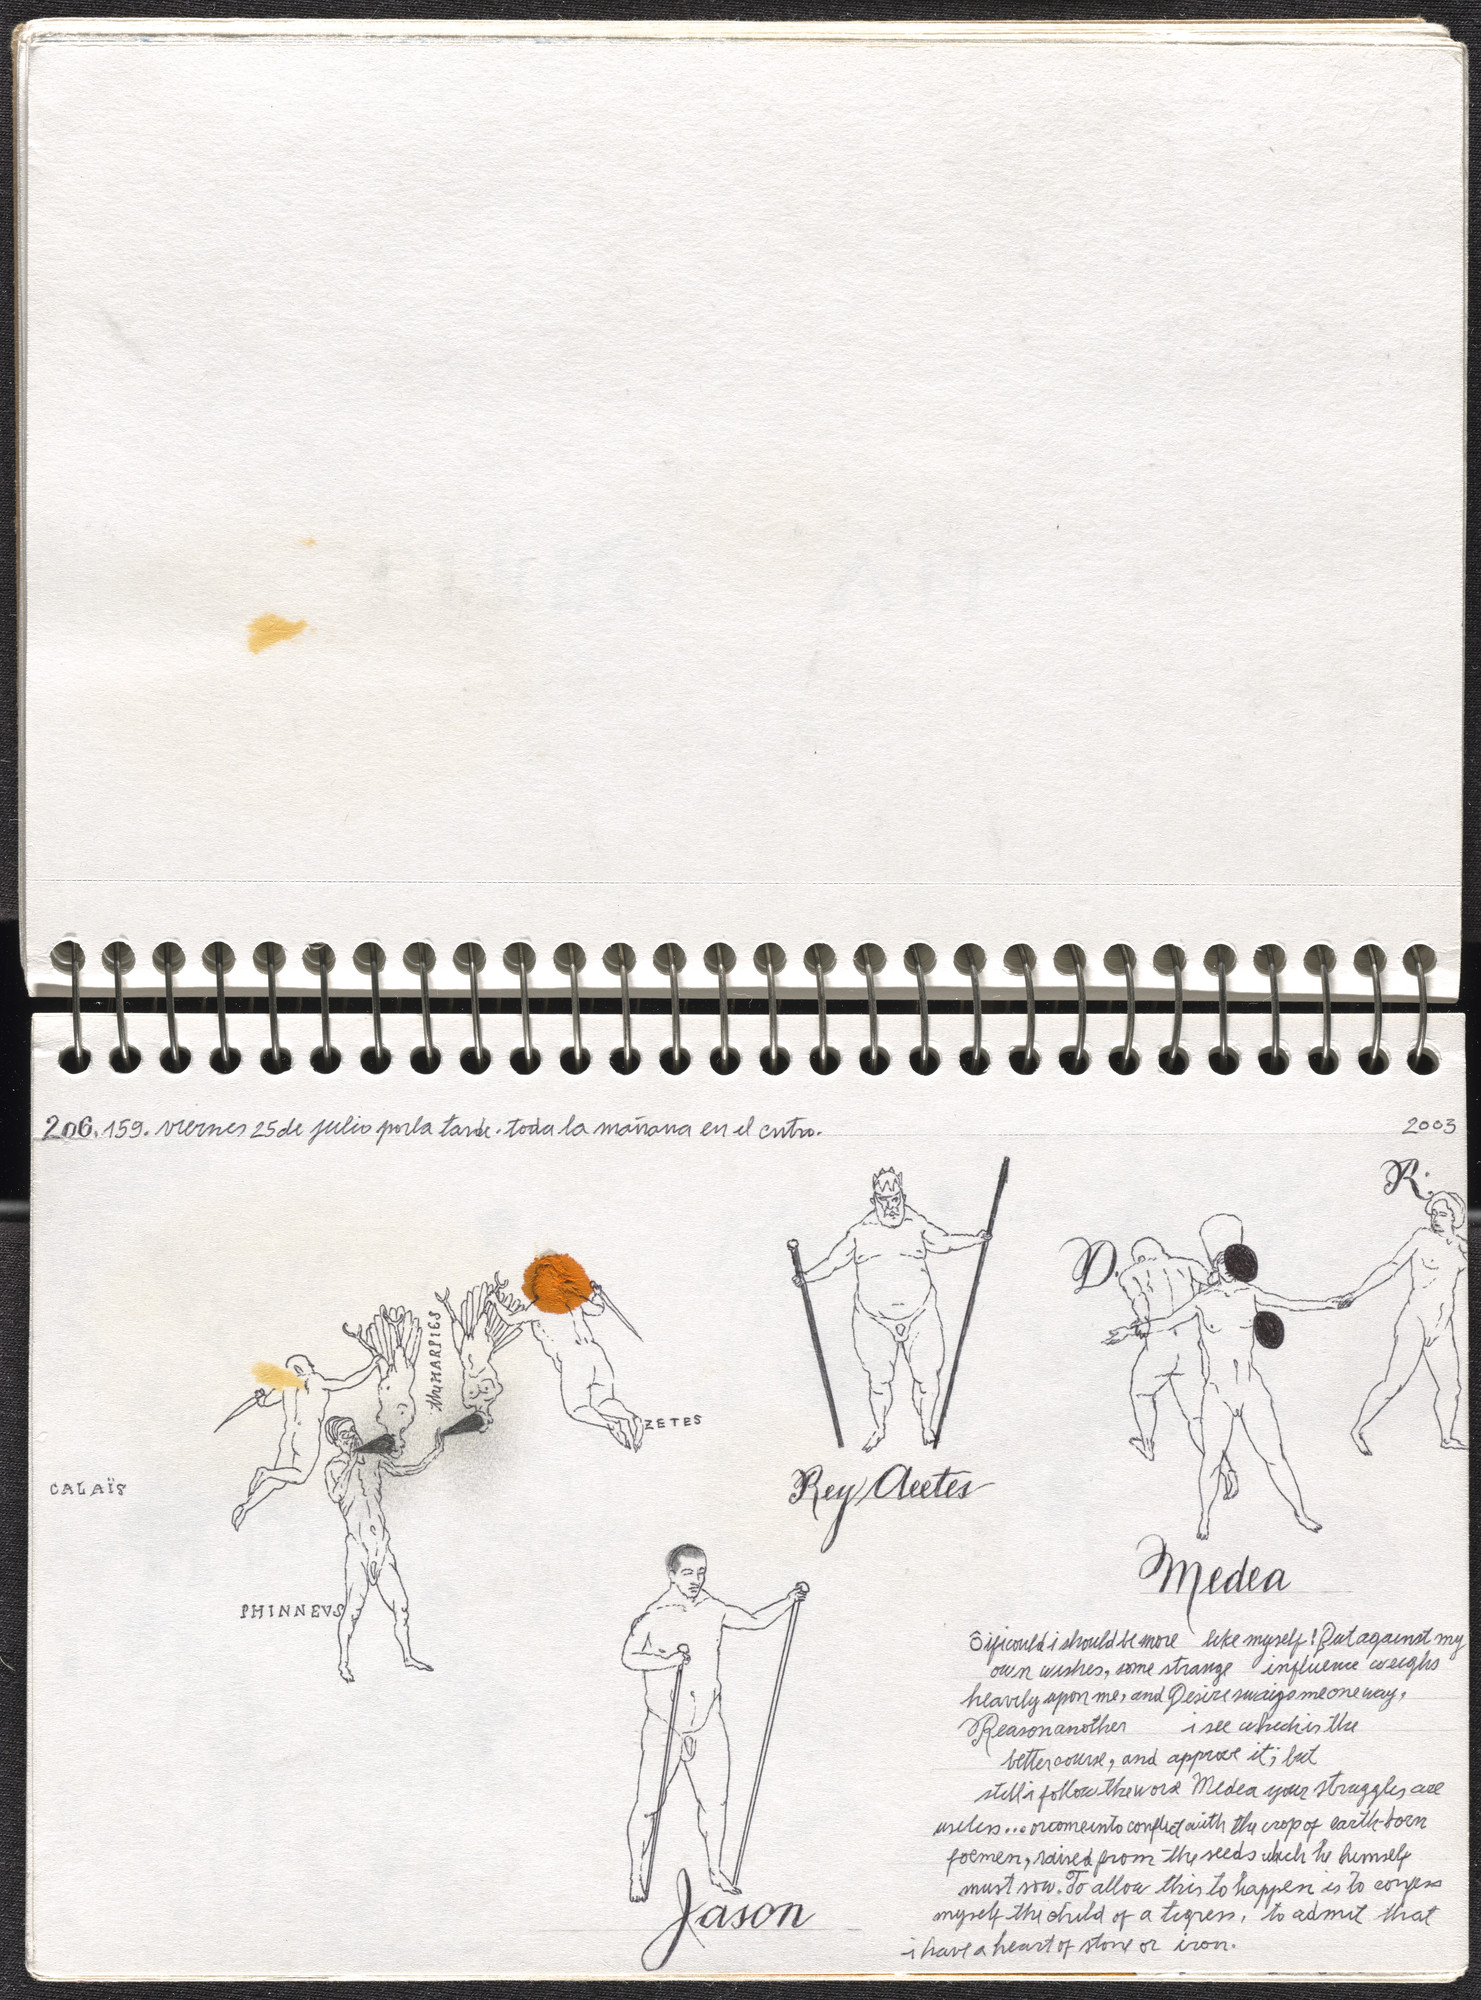 206. 159. viernes 25 de julio por la tarde. toda la mañana en el cntro.
2003
R.
D.
the HARPIES
ZETES
CALAÏS
Rey Aeetes
Medea
PHINNEVS
Jason
Ô if i could i should be more like myself! But against my
own wishes, some strange influence weighs
heavily upon me, and Desire sways me one way,
Reason another i see which is the
better course, and approve it; but
still i follow the worse Medea your struggles are
useless... or come into conflict with the crop of earth-born
foemen, raised from the seeds which he himself
must sow. To allow this to happen is to confess
myself the child of a tigress, to admit that
i have a heart of stone or iron.